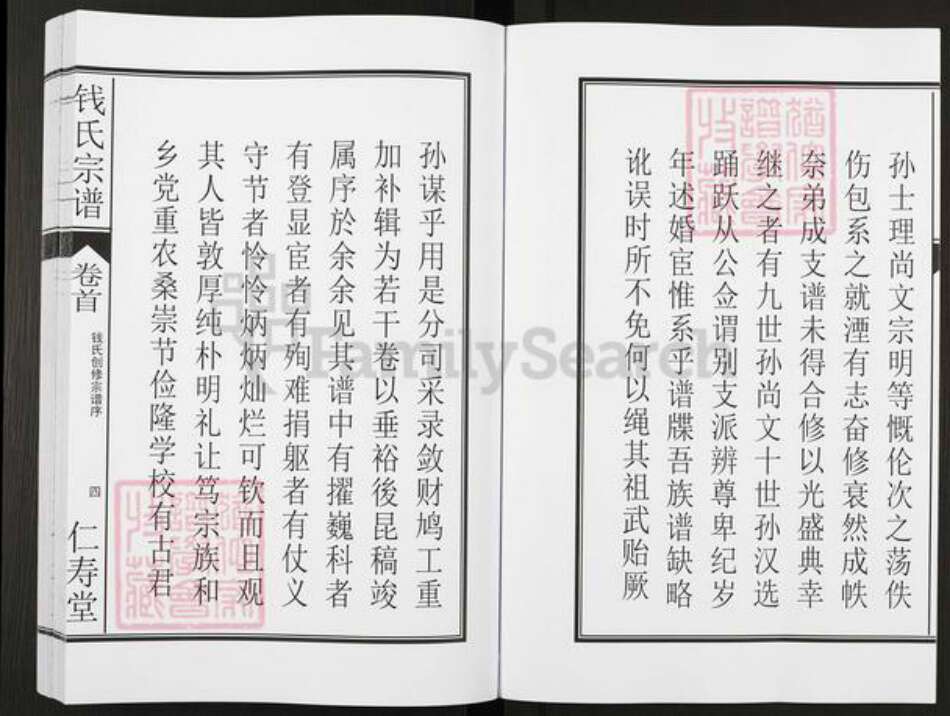 孙士理尚文宗明等慨伦次之荡佚
伤包系之就湮有志奋修衰然成帙
奈弟成支谱未得合修以光盛典幸
继之者有九世孙尚文十世孙汉选
踊跃从公佥谓别支派辨尊卑纪岁
年述婚宦惟系乎谱牒吾族谱缺略
讹误时所不免何以绳其祖武贻厥
孙谋乎用是分司采录敛财鸠工重
加补辑为若干卷以垂裕後昆稿竣
属序於余余见其谱中有擢巍科者
有登显宦者有殉难捐躯者有仗义
守节者怜怜炳炳灿烂可钦而且观
其人皆敦厚纯朴明礼让笃宗族和
乡党重农桑崇节俭隆学校有古君
钱氏宗谱
卷首
钱氏创修宗谱序
四
仁寿堂
FamilySearch